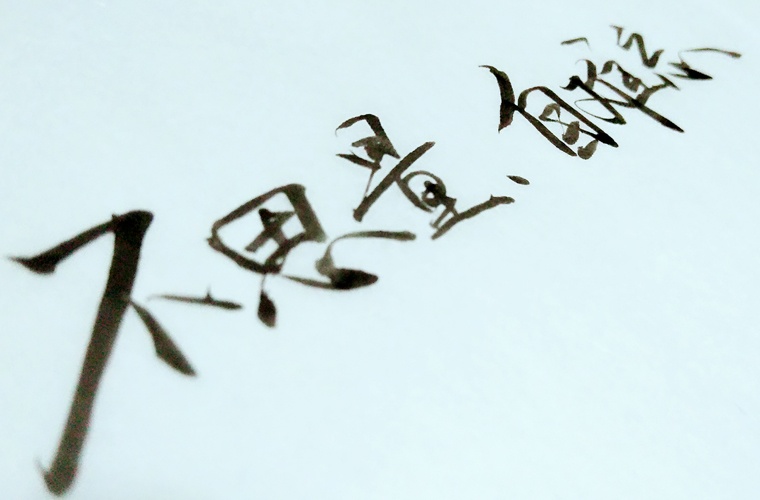 不思量,自难忘